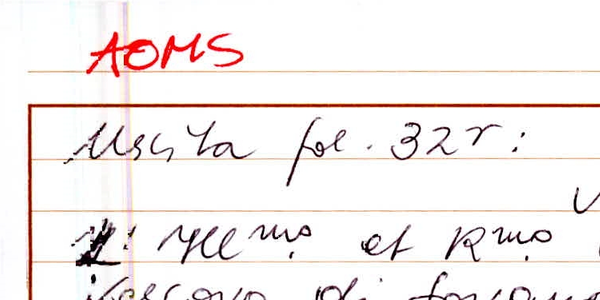 AOMS
Uscita fol. 32r:
Ill.mo et R.mo
Vescovo di